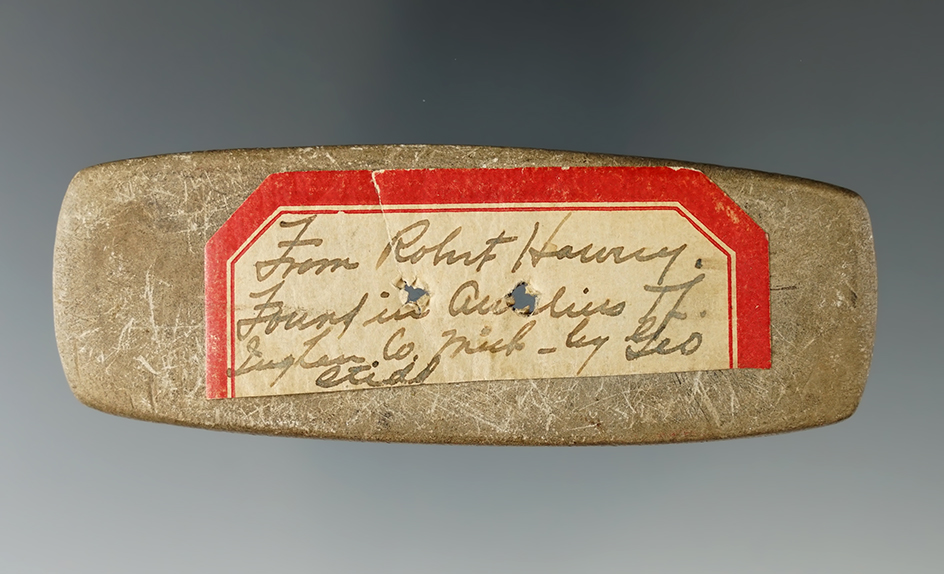 From Robert Hawrey.
Found in Aurelius Tp.
Ingham Co. Mich - by Geo